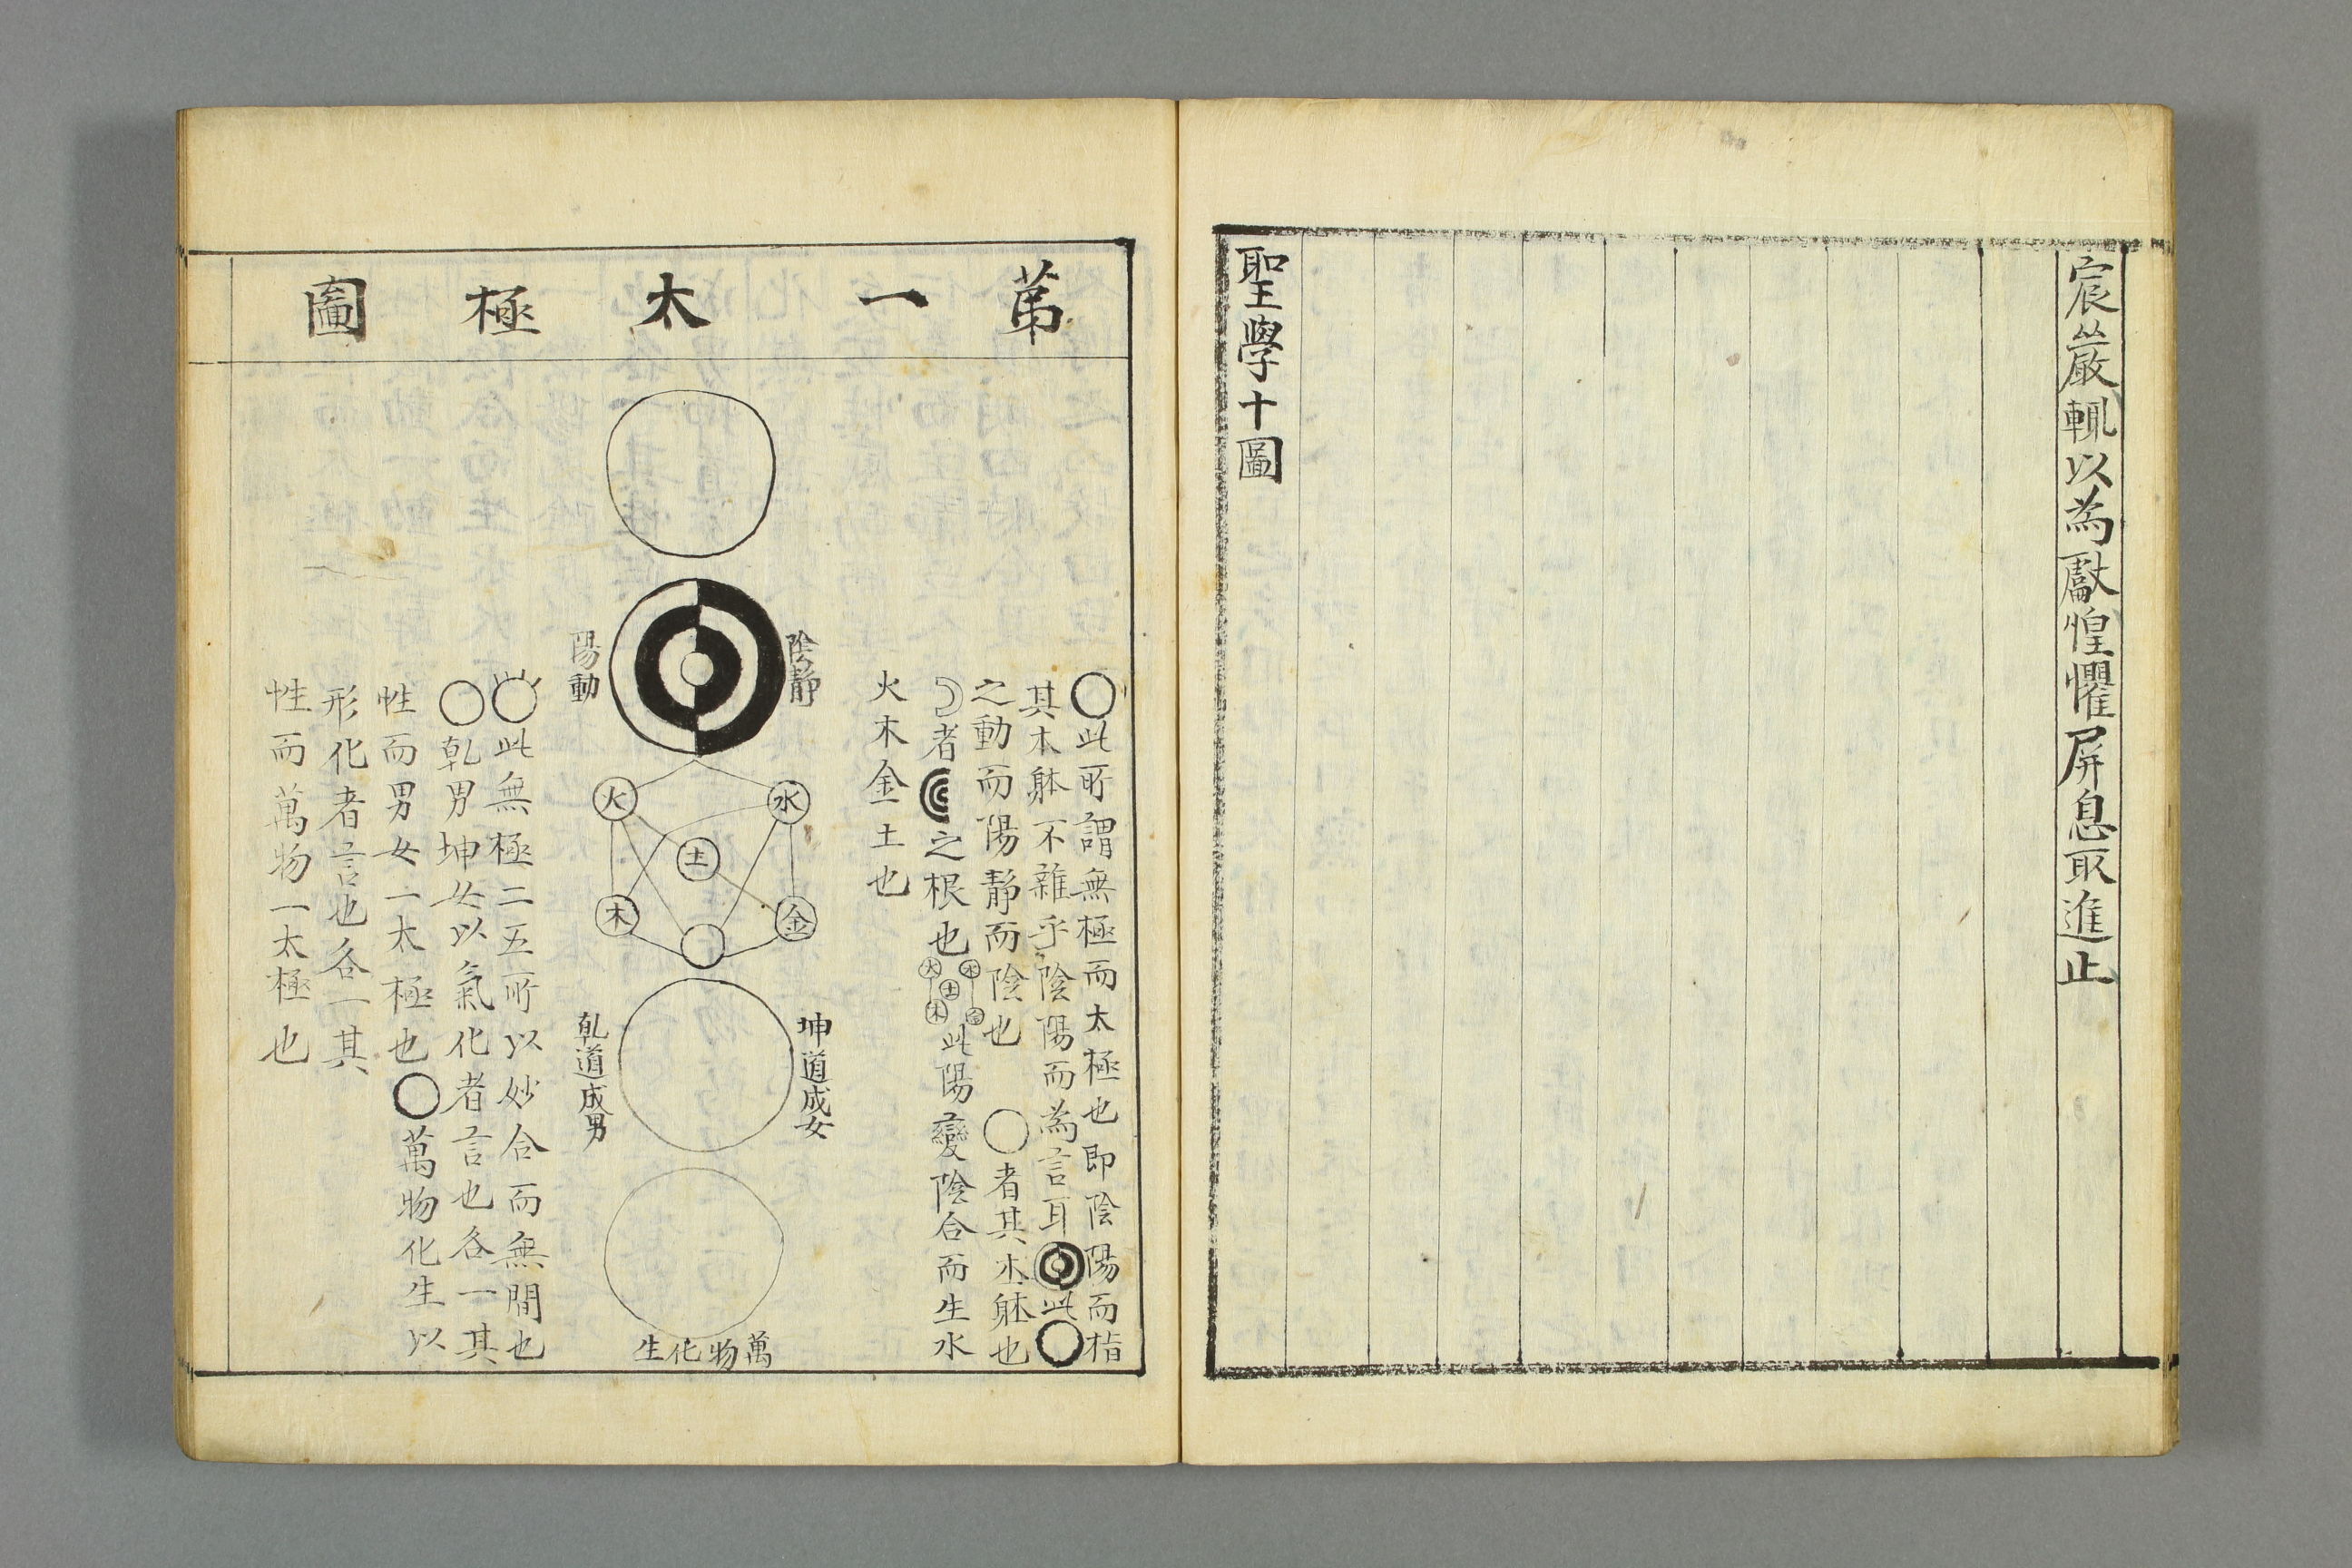 宸嚴輒以為獻惶懼屏息取進止
聖學十圖
第一太極圖
○此所謂無極而太極也即陰陽而指
其本躰不雜乎陰陽而為言耳 此○
之動而陽靜而陰也 ○者其本躰也
者 之根也 火水土木金 此陽變陰合而生水
火木金土也
陰靜
陽動
火
水
土
木
金
坤道成女
乾道成男
萬物化生
此無極二五所以妙合而無間也
○乹男坤女以氣化者言也各一其
性而男女一太極也○萬物化生以
形化者言也各一其
性而萬物一太極也